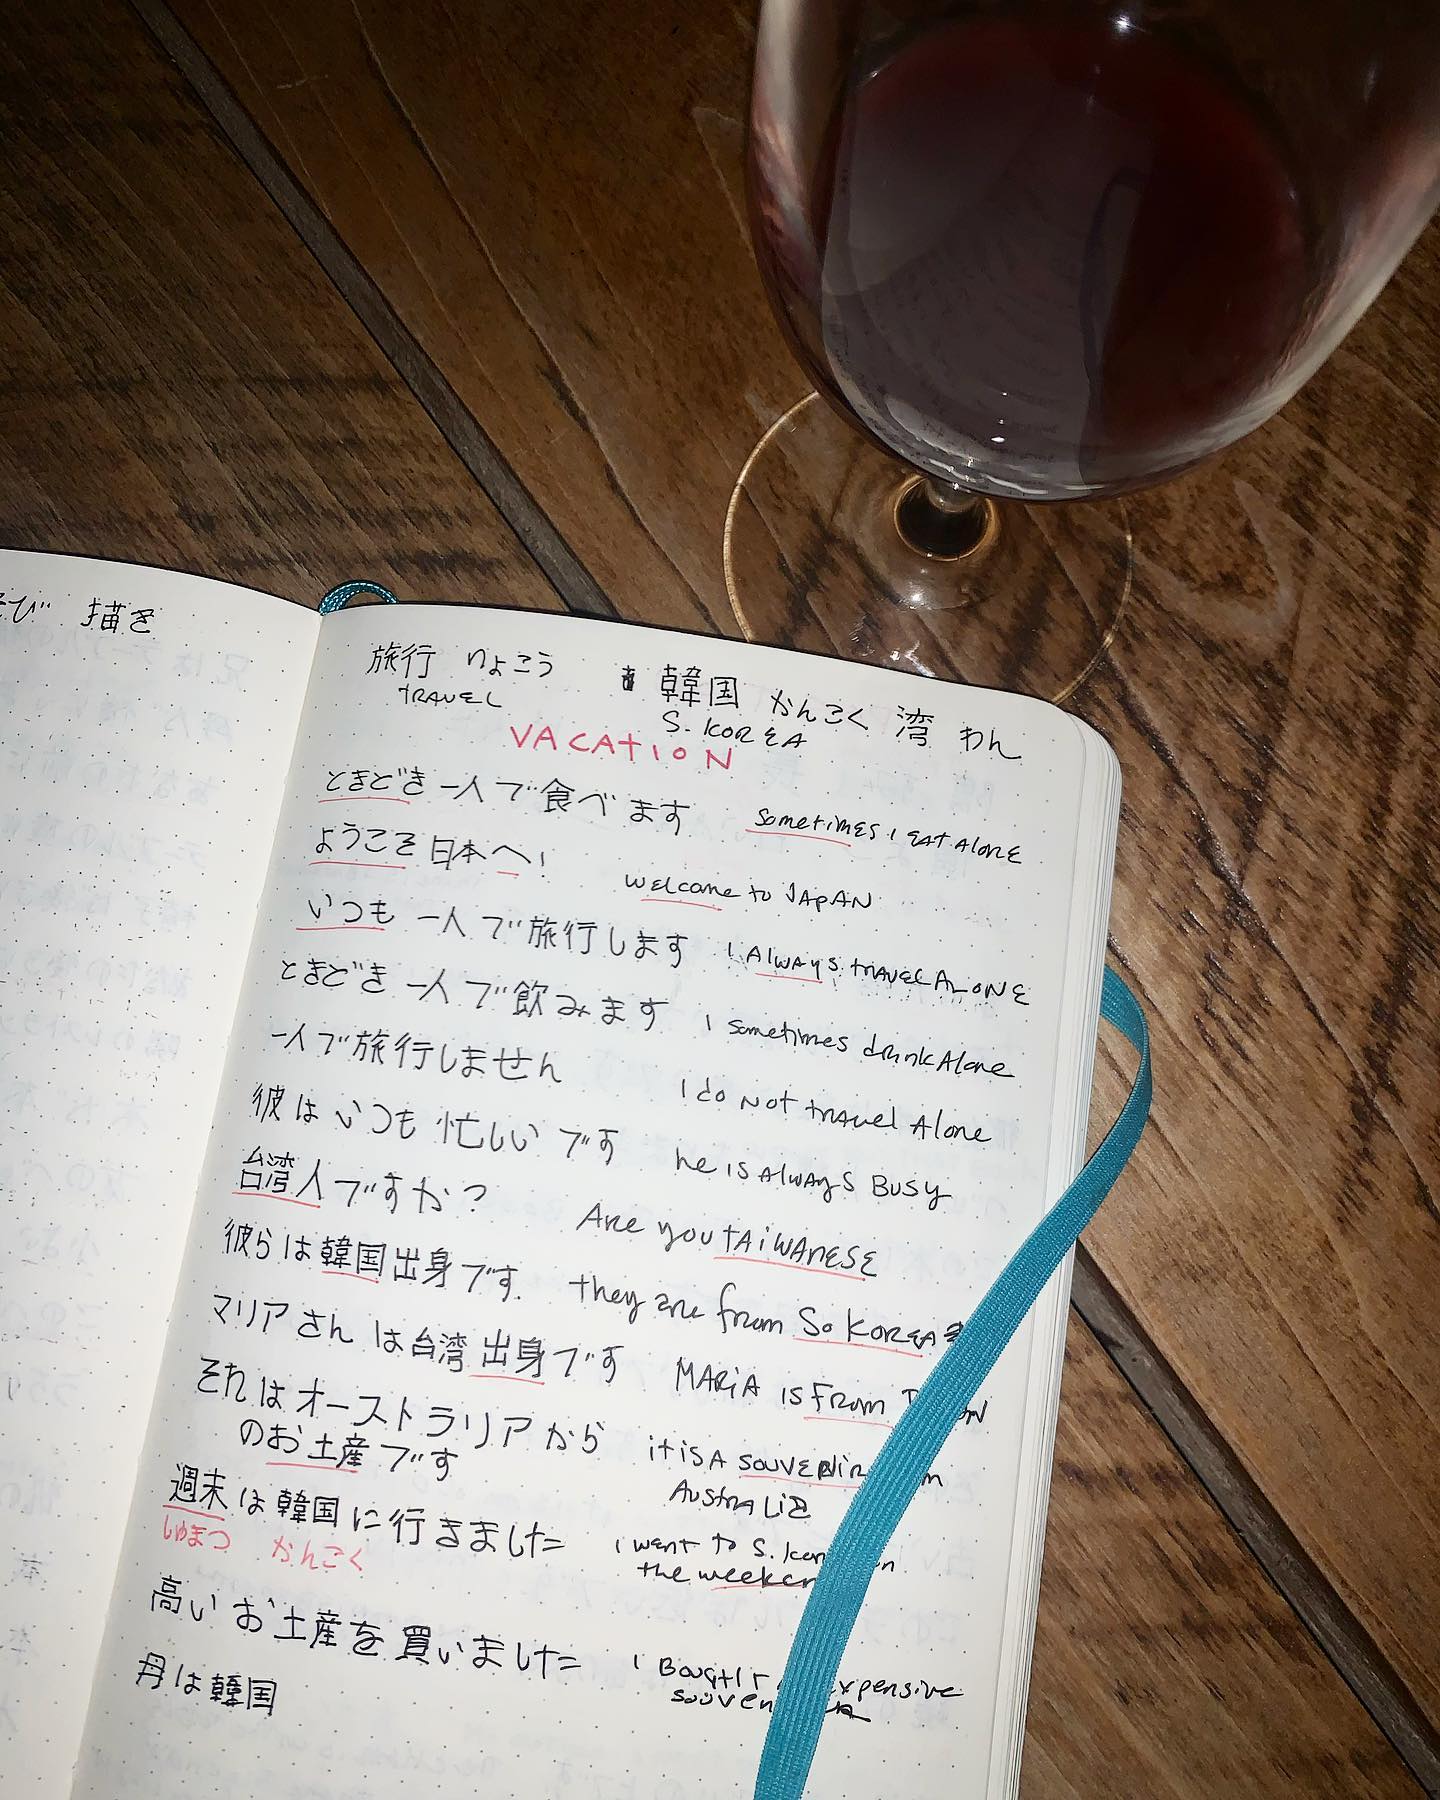 描き
旅行 りょこう 韓国 かんこく 湾 わん
TRAVEL S. KOREA
VACATION
ときどき 一人で食べます sometimes I EAT ALONE
ようこそ 日本へ! welcome to JAPAN
いつも 一人で旅行します I Always travel ALONE
ときどき 一人で飲みます I sometimes drink Alone
一人で旅行しません I do Not travel Alone
彼は いつも 忙しい です he is always BUSY
台湾人ですか? Are you TAiWANESE
彼らは韓国出身です. they are from So KOREA
マリアさん は台湾出身です MARiA is from
それはオーストラリアから it is A SOUVENir
のお土産です AustraLiA
週末は韓国に行きました I went to S.
しゅまつ かんこく the
高いお土産を買いました I Bought expensive
母は韓国